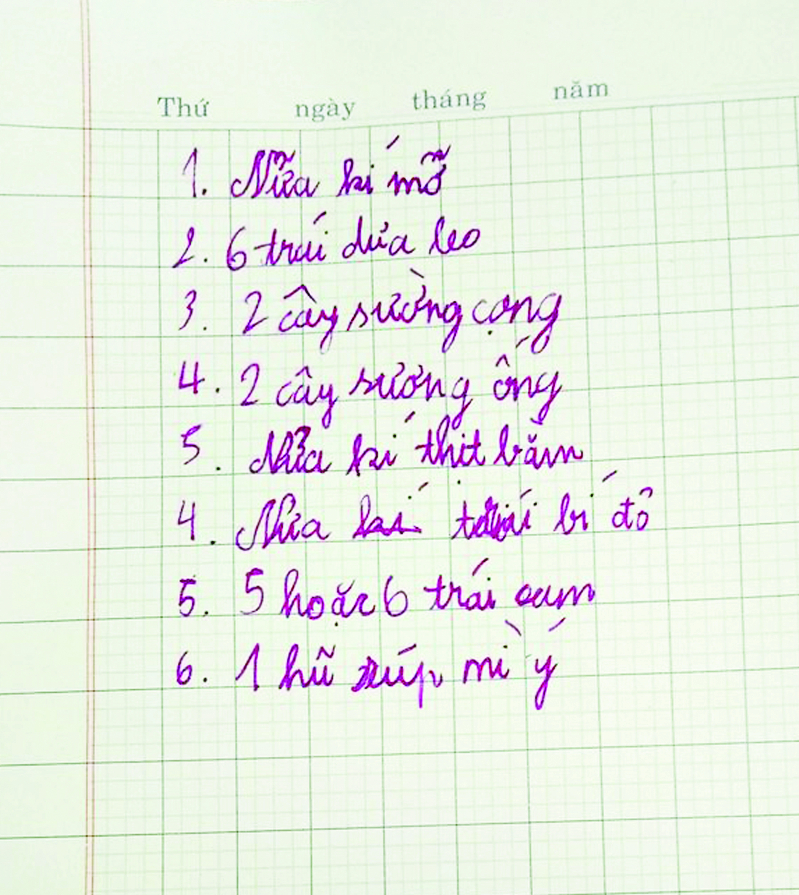 Thứ ngày tháng năm
1. Nữa kí mỡ
2. 6 trái dưa leo
3. 2 cây sường cọng
4. 2 cây sương ống
5. Nữa kí thit bằm
4. Nưa kí trái bí đỏ
5. 5 hoặc 6 trái cam
6. 1 hũ xúp mì ý